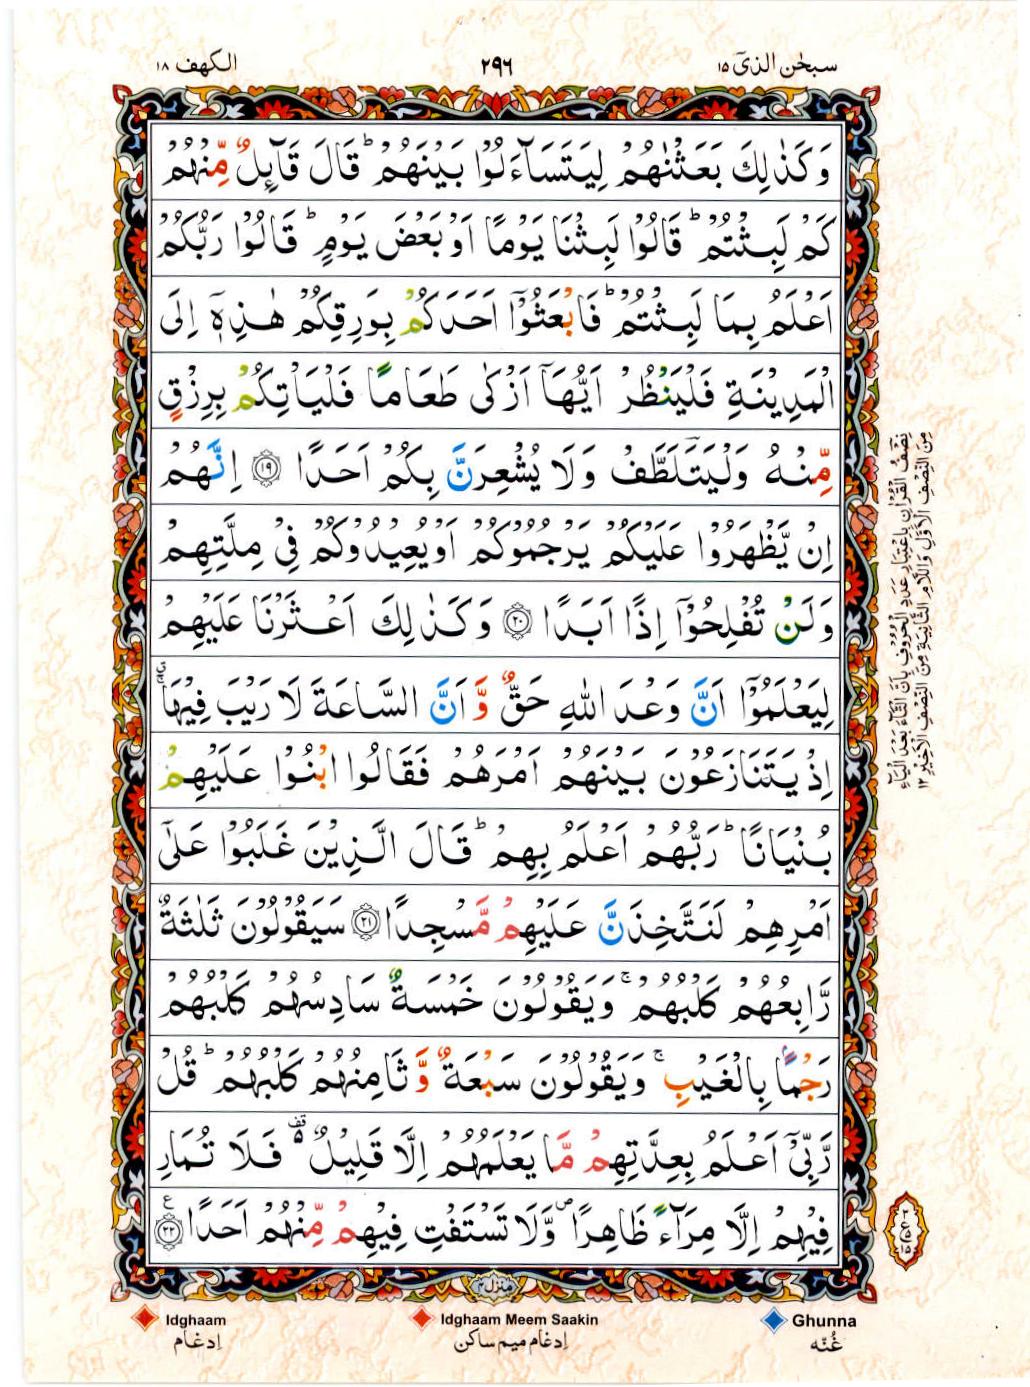 سبحٰن الذیٓ ۱۵
۲۹۶
الكهف ۱۸
وَكَذٰلِكَ بَعَثْنٰهُمْ لِيَتَسَآءَلُوْا بَيْنَهُمْ ؕ قَالَ قَآئِلٌ مِّنْهُمْ
كَمْ لَبِثْتُمْ ؕ قَالُوْا لَبِثْنَا يَوْمًا اَوْ بَعْضَ يَوْمٍ ؕ قَالُوْا رَبُّكُمْ
اَعْلَمُ بِمَا لَبِثْتُمْ ؕ فَابْعَثُوْۤا اَحَدَكُمْ بِوَرِقِكُمْ هٰذِهٖۤ اِلَى
الْمَدِيْنَةِ فَلْيَنْظُرْ اَيُّهَاۤ اَزْكٰى طَعَامًا فَلْيَاْتِكُمْ بِرِزْقٍ
مِّنْهُ وَلْيَتَلَطَّفْ وَلَا يُشْعِرَنَّ بِكُمْ اَحَدًا ۝۱۹ اِنَّهُمْ
اِنْ يَّظْهَرُوْا عَلَيْكُمْ يَرْجُمُوْكُمْ اَوْ يُعِيْدُوْكُمْ فِيْ مِلَّتِهِمْ
وَلَنْ تُفْلِحُوْۤا اِذًا اَبَدًا ۝۲۰ وَكَذٰلِكَ اَعْثَرْنَا عَلَيْهِمْ
لِيَعْلَمُوْۤا اَنَّ وَعْدَ اللّٰهِ حَقٌّ وَّاَنَّ السَّاعَةَ لَا رَيْبَ فِيْهَا
اِذْ يَتَنَازَعُوْنَ بَيْنَهُمْ اَمْرَهُمْ فَقَالُوا ابْنُوْا عَلَيْهِمْ
بُنْيَانًا ؕ رَبُّهُمْ اَعْلَمُ بِهِمْ ؕ قَالَ الَّذِيْنَ غَلَبُوْا عَلٰۤى
اَمْرِهِمْ لَنَتَّخِذَنَّ عَلَيْهِمْ مَّسْجِدًا ۝۲۱ سَيَقُوْلُوْنَ ثَلٰثَةٌ
رَّابِعُهُمْ كَلْبُهُمْ ۚ وَيَقُوْلُوْنَ خَمْسَةٌ سَادِسُهُمْ كَلْبُهُمْ
رَجْمًۢا بِالْغَيْبِ ۚ وَيَقُوْلُوْنَ سَبْعَةٌ وَّثَامِنُهُمْ كَلْبُهُمْ ؕ قُلْ
رَّبِّيْۤ اَعْلَمُ بِعِدَّتِهِمْ مَّا يَعْلَمُهُمْ اِلَّا قَلِيْلٌ ۫ فَلَا تُمَارِ
فِيْهِمْ اِلَّا مِرَآءً ظَاهِرًا ۪ وَّلَا تَسْتَفْتِ فِيْهِمْ مِّنْهُمْ اَحَدًا ۝۲۲
نِصْفُ الْقُرْاٰنِ بِاعْتِبَارِ عَدَدِ الْحُرُوْفِ بِاَنَّ التَّاءَ بَعْدَ الْيَاءِ
مِنَ النِّصْفِ الْاَوَّلِ وَاللَّامِ الثَّانِيَةِ مِنَ النِّصْفِ الْاَخِيْرِ ۱۲
منزل ۴
Ghunna
Idghaam Meem Saakin
Idghaam
غُنّه
إدغام ميم ساكن
إدغام